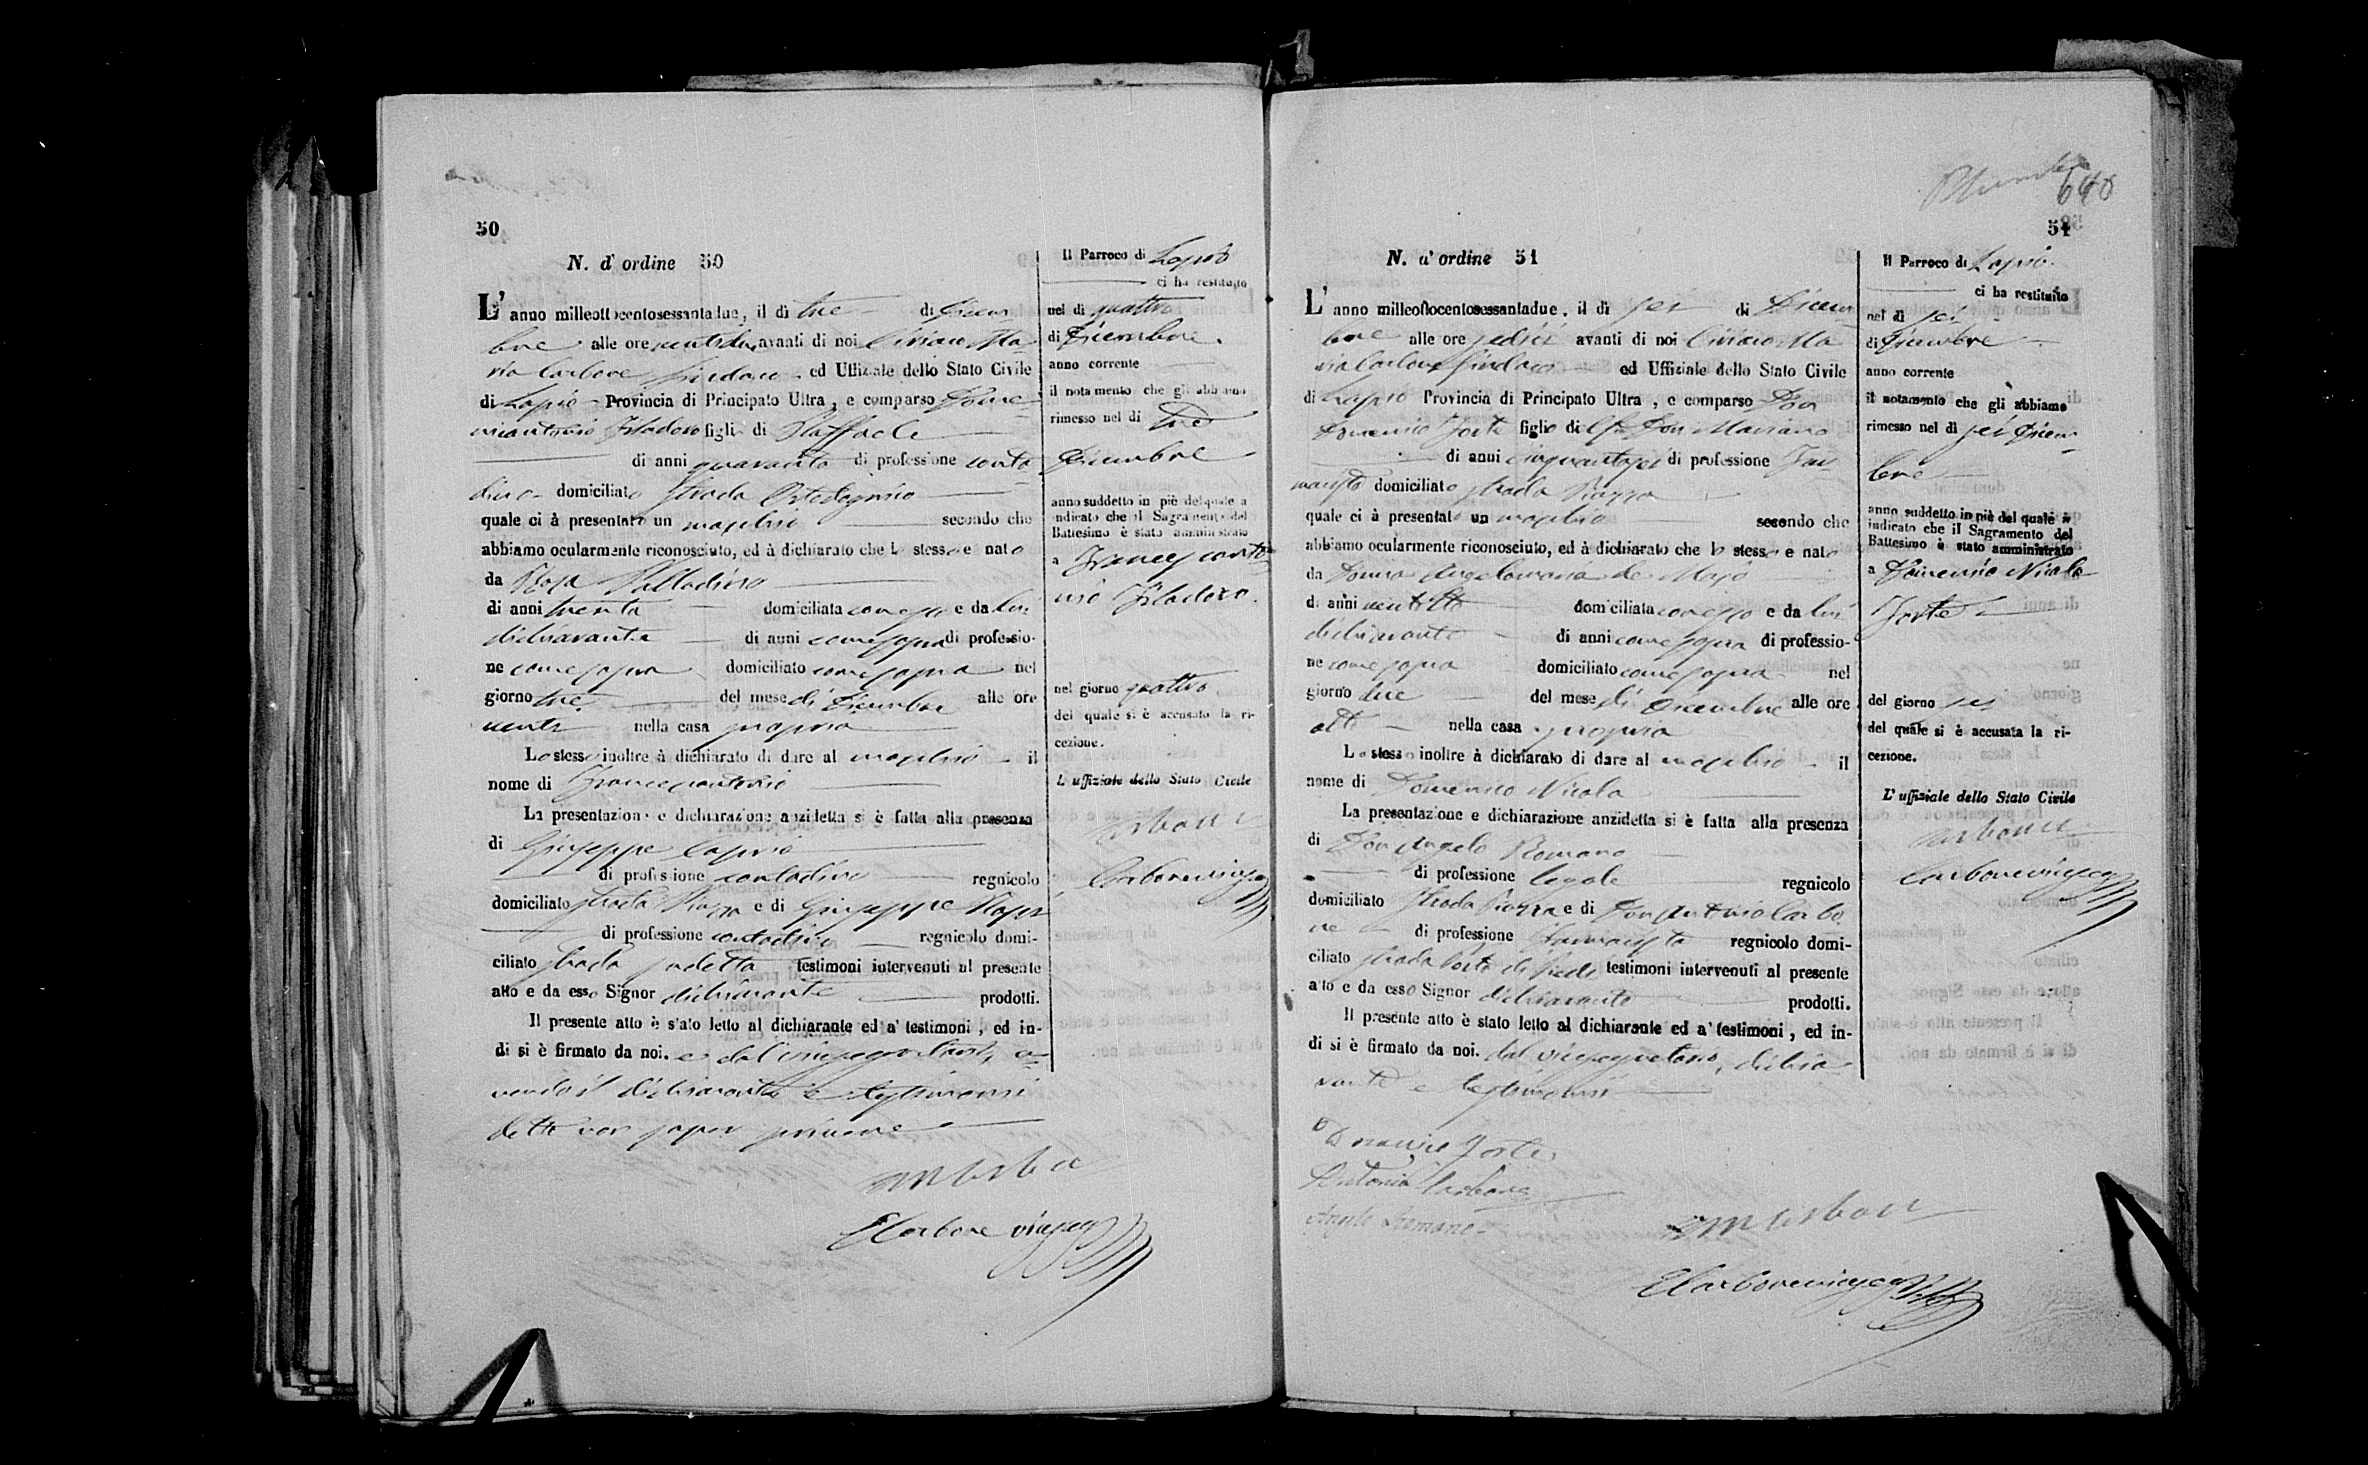 50
N. d' ordine 50
L' anno milleottocentosessantadue, il dì tre di Dicem
bre alle ore ventidue avanti di noi Ciriaco Ma
ria Carbone Sindaco ed Uffiziale dello Stato Civile
di Lapio Provincia di Principato Ultra, e comparso Dome
nicantonio Filadoro figlio di Raffaele
di anni quaranta di professione conta
dino domiciliato strada
quale ci à presentato un maschio secondo che
abbiamo ocularmente riconosciuto, ed à dichiarato che lo stesso e nato
da Rosa Palladino
di anni trenta domiciliata con esso e da lui
dichiarante di anni come sopra di professio-
ne come sopra domiciliato come sopra nel
giorno tre del mese di Dicembre alle ore
venti nella casa propria
Lo stesso inoltre à dichiarato di dare al maschio il
nome di Francescantonio
La presentazione e dichiarazione anzidetta si è fatta alla presenza
di Giuseppe Caprio
di professione contadino regnicolo
domiciliato strada Piazza e di Giuseppe
di professione contadino regnicolo domi-
ciliato strada sudetta testimoni intervenuti al presente
atto e da esso Signor dichiarante prodotti.
Il presente atto è stato letto al dichiarante ed a' testimoni, ed in-
di si è firmato da noi. e dal vicesegretario, a-
vendo il dichiarante e testimoni
detto non saper scrivere
Carbone viceseg
Il Parroco di Lapio
ci ha restituito
nel di quattro
di Dicembre
anno corrente
il notamento che gli abbiamo
rimesso nel di tre
Dicembre
anno suddetto in piè del quale a
indicato che il Sagramento del
Battesimo è stato amministrato
a Francescanto
nio Filadoro
nel giorno quattro
del quale si è accusato la ri-
cezione.
L' uffiziale dello Stato Civile
Carbone viceseg
640
51
N. d' ordine 51
L' anno milleottocentosessantadue, il dì sei di Dicem
bre alle ore sedici avanti di noi Ciriaco Ma
ria Carbone Sindaco ed Uffiziale dello Stato Civile
di Lapio Provincia di Principato Ultra, e comparso Don
Domenico Forte figlio di fu Don Mariano
di anni cinquantasei di professione Far
macista domiciliato strada Piazza
quale ci à presentato un maschio secondo che
abbiamo ocularmente riconosciuto, ed à dichiarato che lo stesso e nato
da Donna Angelamaria de Majo
di anni ventotto domiciliata con esso e da lui
dichiarante di anni come sopra di professio-
ne come sopra domiciliato come sopra nel
giorno due del mese di Dicembre alle ore
otto nella casa propria
Lo stesso inoltre à dichiarato di dare al maschio il
nome di Domenico Nicola
La presentazione e dichiarazione anzidetta si è fatta alla presenza
di Don Angelo Romano
di professione legale regnicolo
domiciliato strada Piazza e di Don Antonio Carbo
ne di professione Farmacista regnicolo domi-
ciliato strada Porta di Piedi testimoni intervenuti al presente
atto e da esso Signor dichiarante prodotti.
Il presente atto è stato letto al dichiarante ed a' testimoni, ed in-
di si è firmato da noi. dal vicesegretario, dichia
rante e testimoni
Domenico Forte
Antonio Carbone
Angelo Romano
Carbone viceseg
Il Parroco di Lapio
ci ha restituito
nel di sei
di Dicembre
anno corrente
il notamento che gli abbiamo
rimesso nel dì sei Dicem
bre
anno suddetto in piè del quale a
indicato che il Sagramento del
Battesimo è stato amministrato
a Domenico Nicola
Forte
del giorno sei
del quale si è accusata la ri-
cezione.
L' uffiziale dello Stato Civile
Carbone viceseg